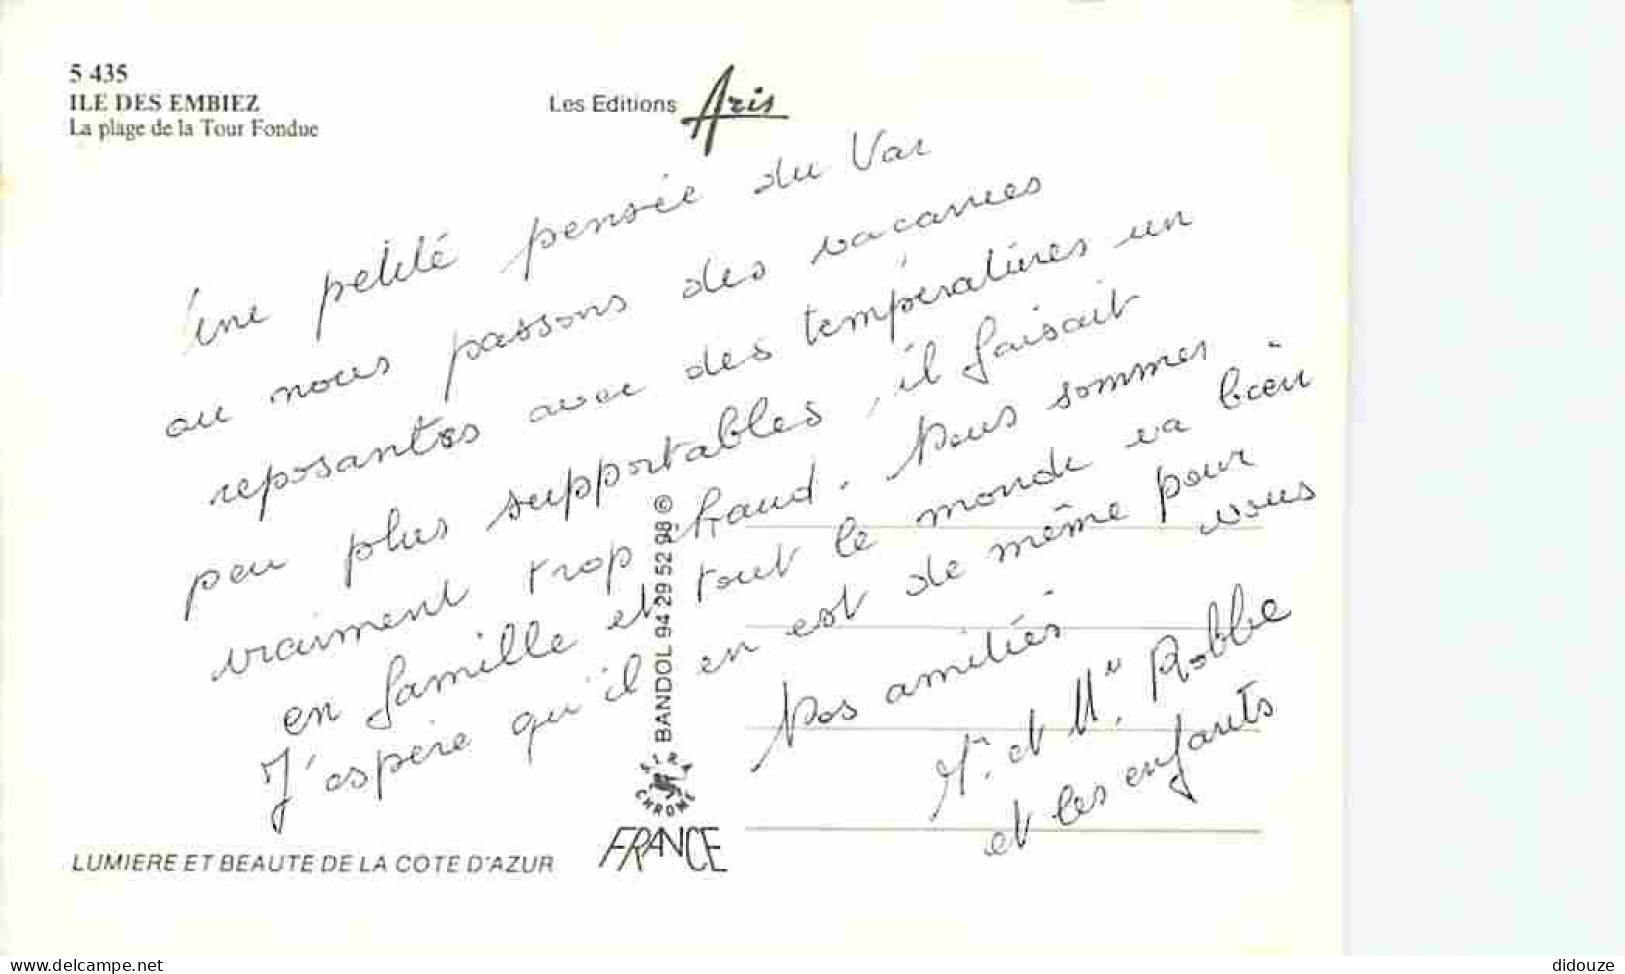 5 435
ILE DES EMBIEZ
La plage de la Tour Fondue
Les Editions Aris
Une petite pensée du Var
ou nous passons des vacances
reposantes avec des températures un
peu plus supportables, il faisait
vraiment trop chaud. Nous sommes
en famille et tout le monde va bien
J'espère qu'il en est de même pour
vous
Nos amitiés
Mr. et Me. Robbe
et les enfants
BANDOL 94 29 52 98 ©
SIRA
CHROME
FRANCE
LUMIERE ET BEAUTE DE LA COTE D'AZUR
www.delcampe.net
didouze